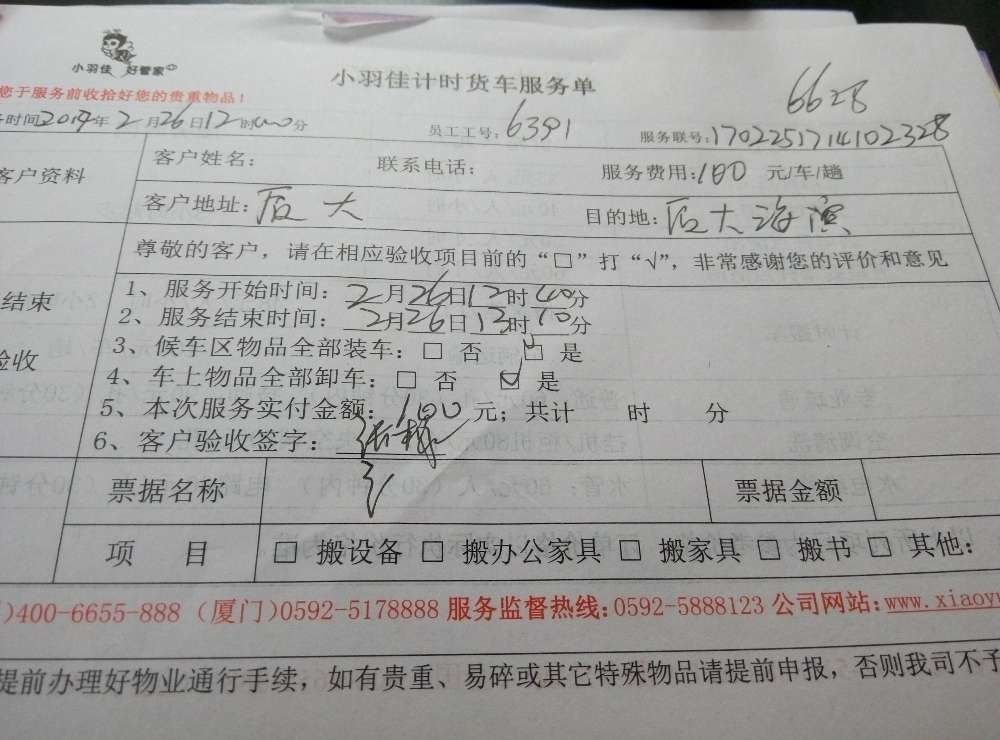 小羽佳 好管家
小羽佳计时货车服务单
6628
您于服务前收拾好您的贵重物品!
时间2017年2月26日12时40分 员工工号:6391 服务联号:1702251714102328
客户资料 客户姓名: 联系电话: 服务费用:100 元/车/趟
客户地址:厦大 目的地:厦大海滨
尊敬的客户，请在相应验收项目前的“□”打“√”，非常感谢您的评价和意见
结束
验收
1、服务开始时间:2月26日12时40分
2、服务结束时间:2月26日13时10分
3、候车区物品全部装车:□ 否 ☑ 是
4、车上物品全部卸车:□ 否 ☑ 是
5、本次服务实付金额:100元; 共计 时 分
6、客户验收签字:
票据名称 票据金额
项 目 □ 搬设备 □ 搬办公家具 □ 搬家具 □ 搬书 □ 其他:
)400-6655-888 (厦门)0592-5178888 服务监督热线:0592-5888123 公司网站:www.xiaoy
提前办理好物业通行手续，如有贵重、易碎或其它特殊物品请提前申报，否则我司不予